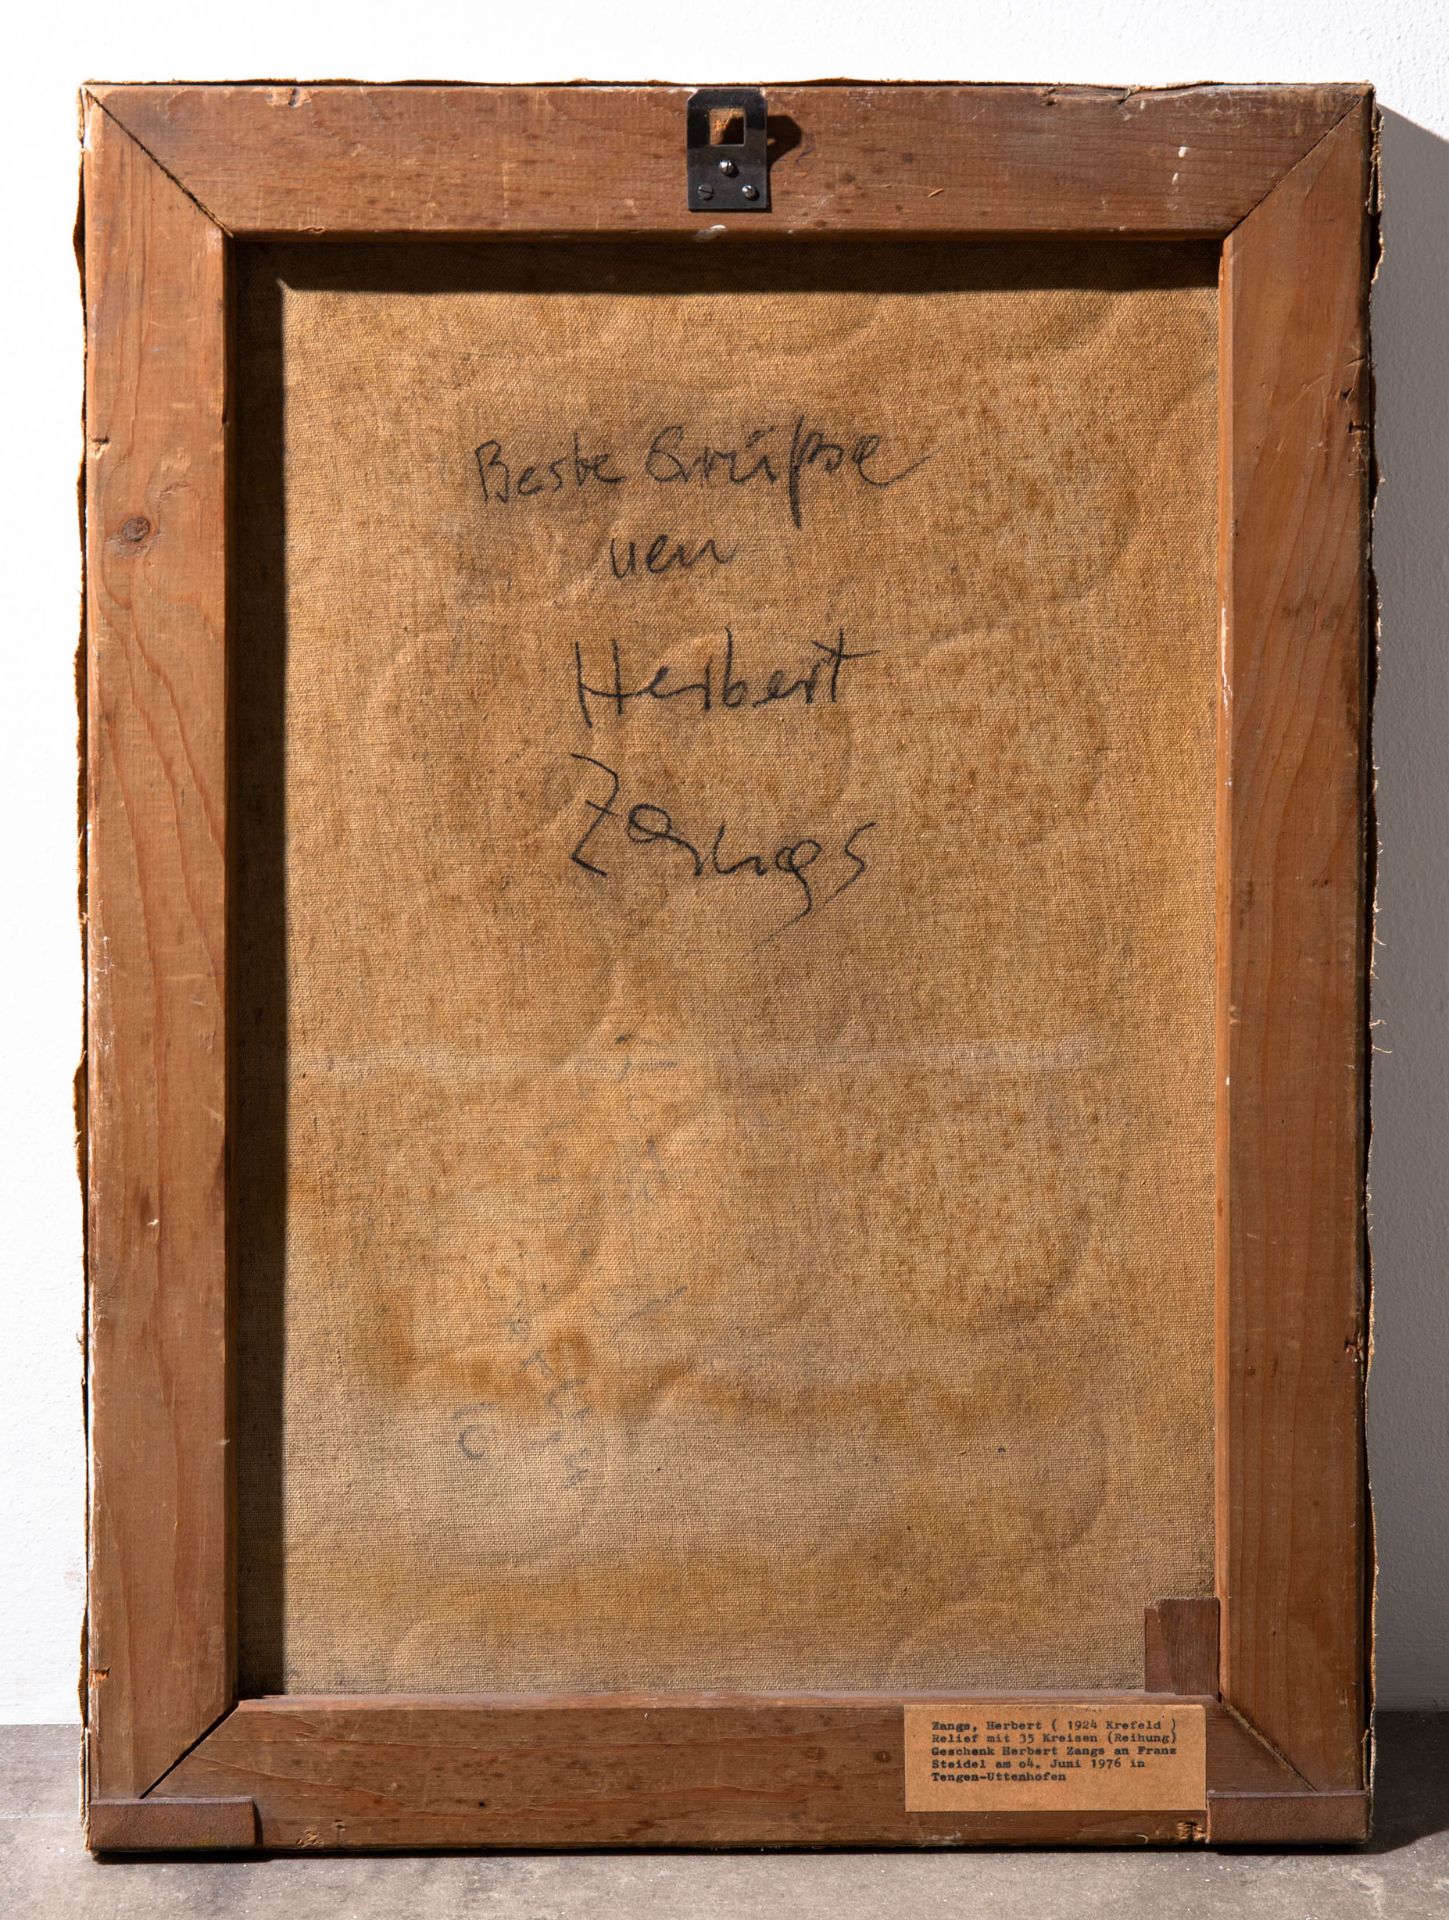 Beste Grüße
von
Herbert
Zangs
Zangs, Herbert ( 1924 Krefeld )
Relief mit 35 Kreisen (Reihung)
Geschenk Herbert Zangs an Franz
Steidel am o4. Juni 1976 in
Tengen-Uttenhofen